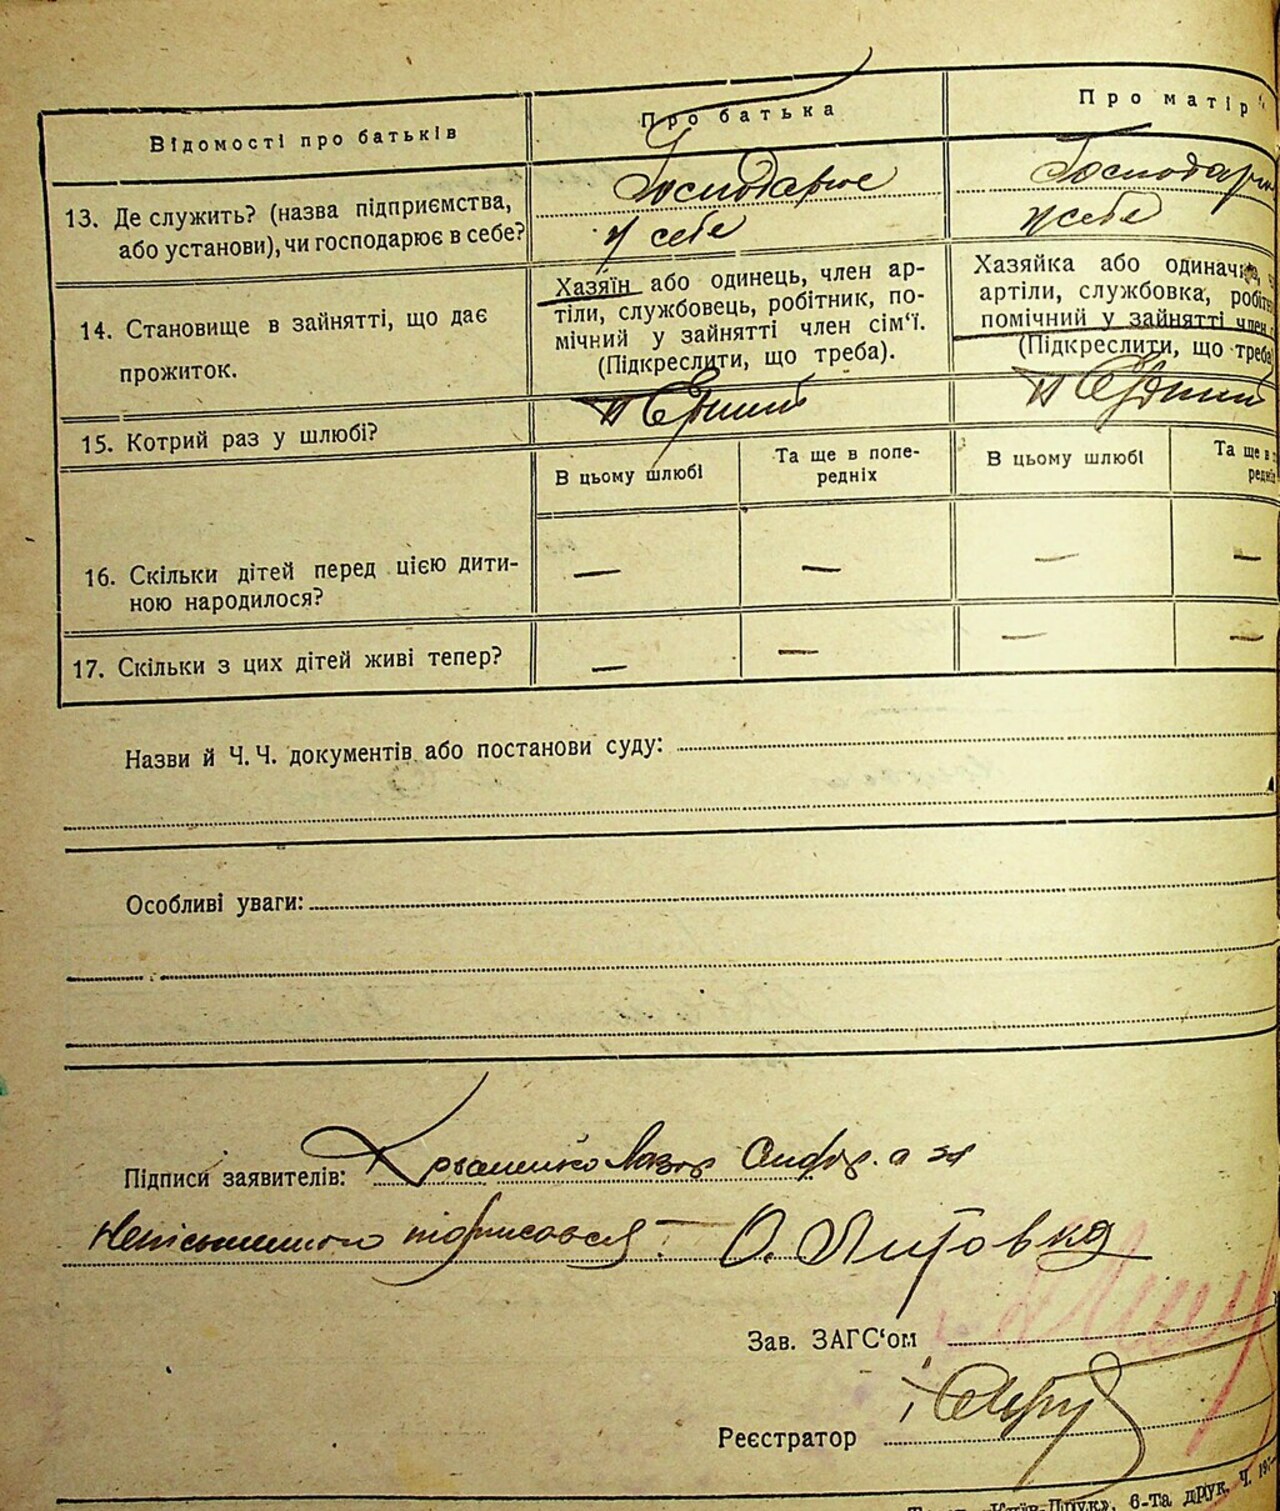 Відомості про батьків
Про батька
Про матір
13. Де служить? (назва підприємства,
або установи), чи господарює в себе?
Господарює
у себе
Господарює
у себе
14. Становище в зайнятті, що дає
прожиток.
Хазяїн або одинець, член ар-
тіли, службовець, робітник, по-
мічний у зайнятті член сім‘ї.
(Підкреслити, що треба).
Хазяйка або одиначка,
артіли, службовка,
помічний у зайнятті член
(Підкреслити, що треба
15. Котрий раз у шлюбі?
В цьому шлюбі
Та ще в попе-
редніх
В цьому шлюбі
Та ще в
16. Скільки дітей перед цією дити-
ною народилося?
— — — —
17. Скільки з цих дітей живі тепер?
— — — —
Назви й Ч. Ч. документів або постанови суду:
Особливі уваги:
Підписи заявителів: Лазор а за
неписьменного підписався: О. Литовка
Зав. ЗАГС‘ом
Реєстратор
«Київ-Друк», 6-та друк. Ч.